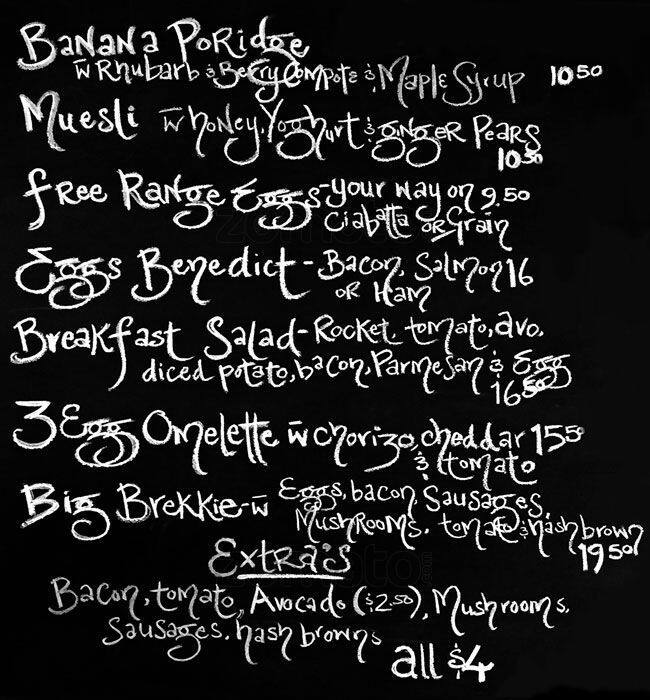 Banana Poridge
w Rhubarb & Berry Compote & Maple Syrup 10 50
Muesli w honey, Yoghurt & ginger Pears
10 50
Free Range Eggs - your way on 9.50
Ciabatta or Grain
Eggs Benedict - Bacon, Salmon 16
or Ham
Breakfast Salad - Rocket, tomato, avo,
diced potato, bacon, Parmesan & Egg
16 50
3 Egg Omelette w chorizo, cheddar 15 50
& tomato
Big Brekkie - w Eggs, bacon, Sausages,
Mushrooms, tomato & hash brown
19 50
Extra's
Bacon, tomato, Avocado ($2.50), Mushrooms,
Sausages, hash browns
all $4